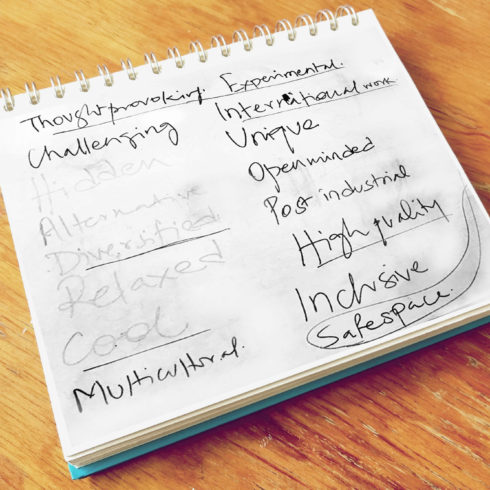 Thought provoking.
Challenging
Hidden
Alternative
Diversified
Relaxed
Cool
Multicultural.
Experimental.
International work
Unique
Openminded
Post industrial
High quality
Inclusive
Safespace.